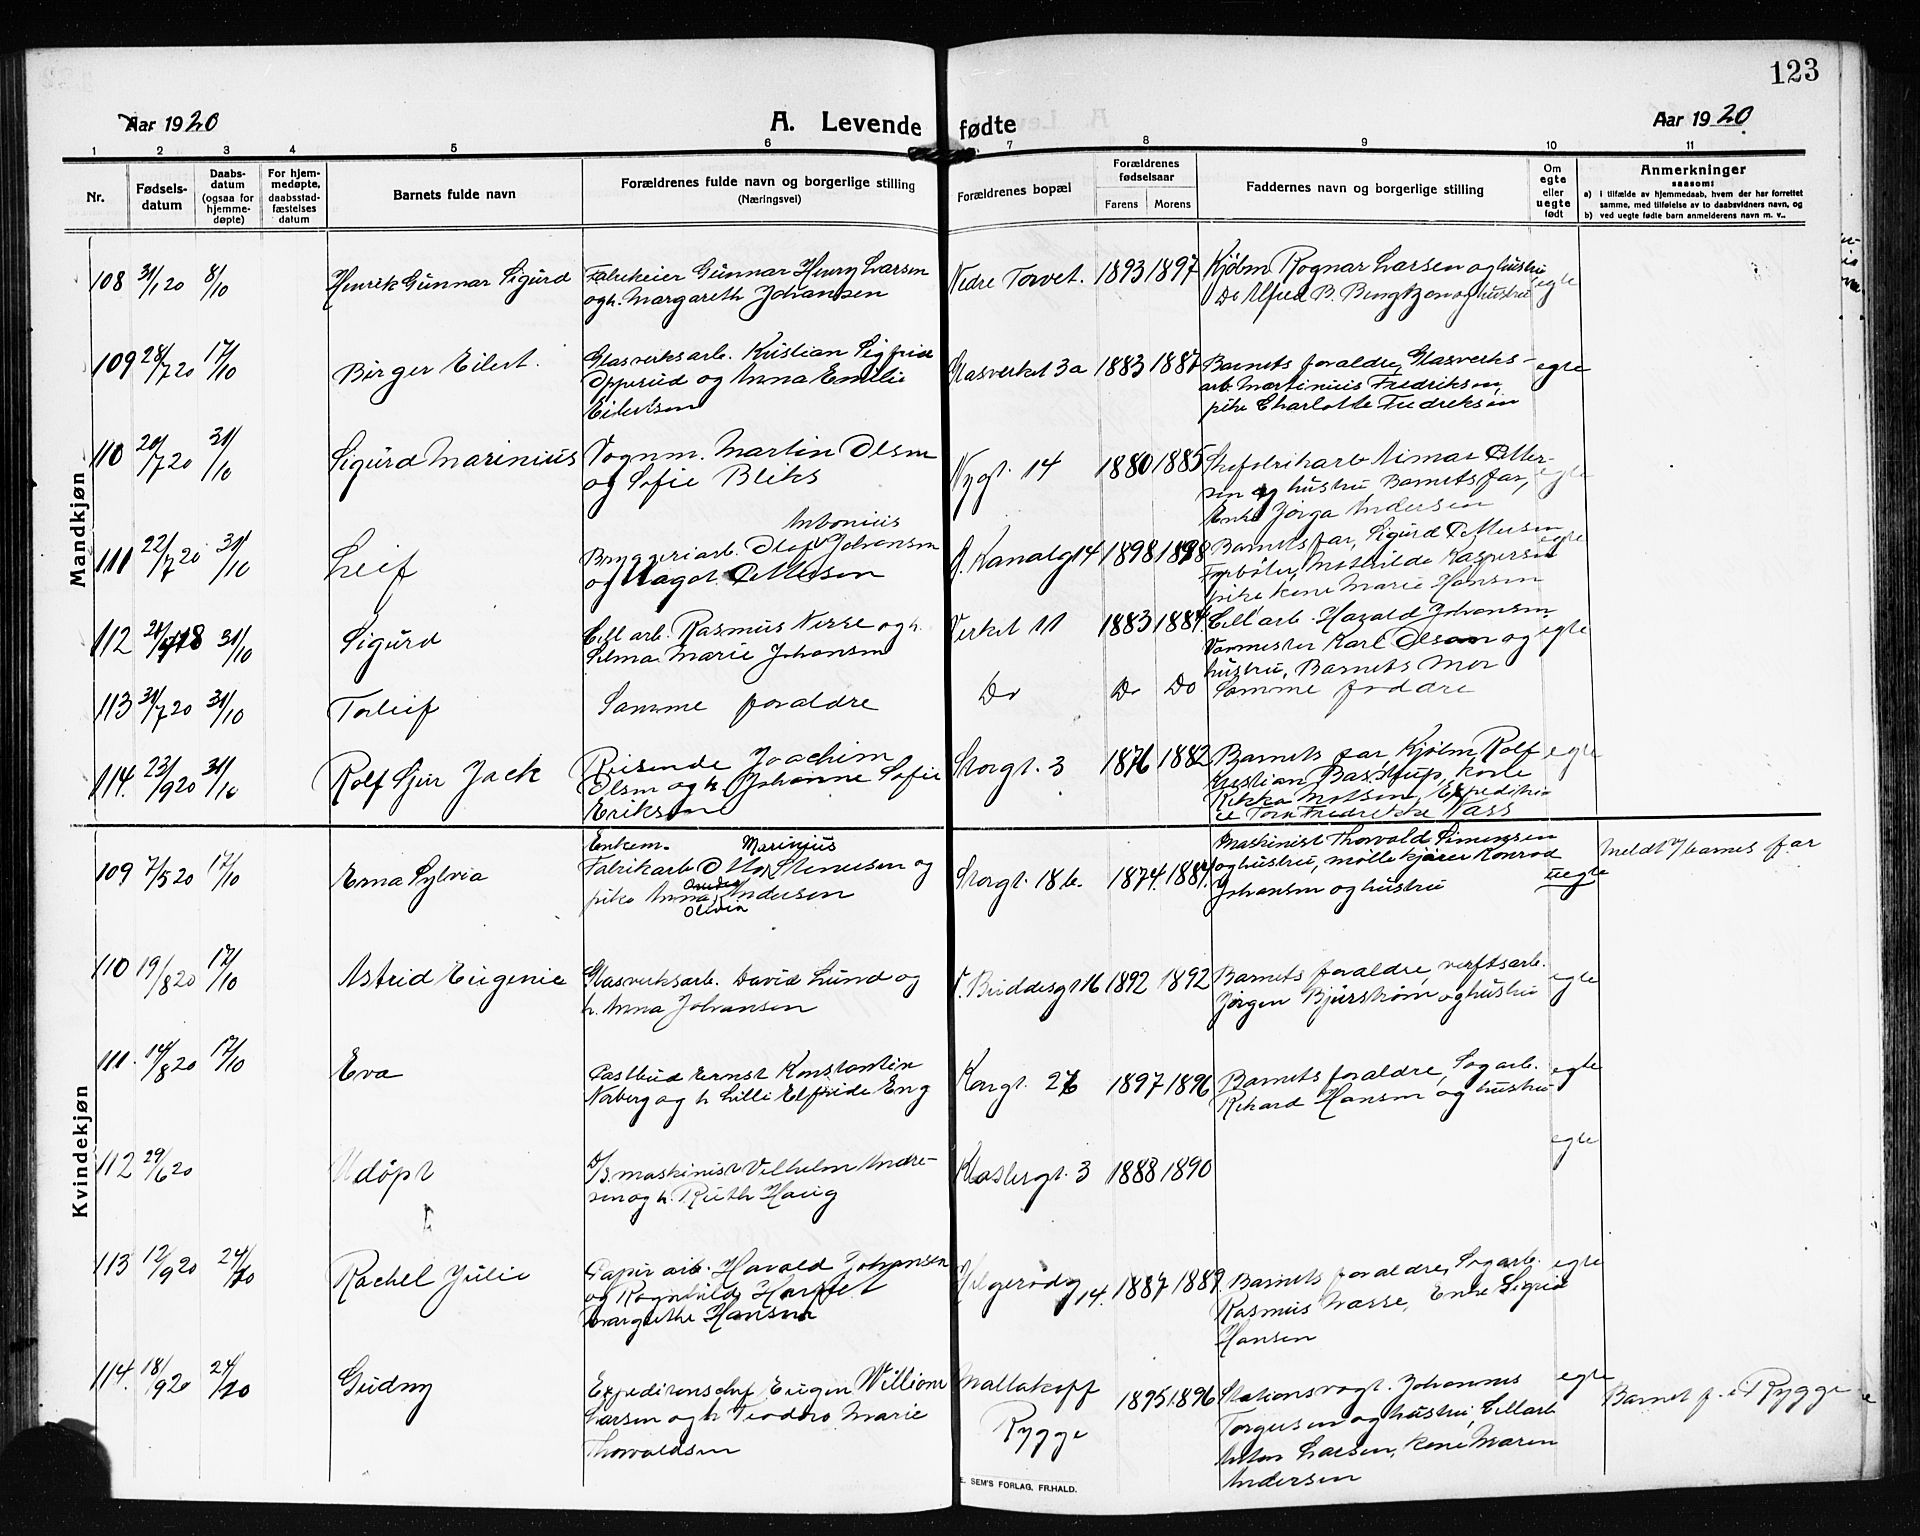 123
Aar 1920
A. Levende fødte
Aar 1920
1 2 3 4 5 6 7 8 9 10 11
Nr.
Fødsels-
datum
Daabs-
datum
(ogsaa for
hjemme-
døpte)
For hjem-
medøpte,
daabsstad-
fæstelses
datum
Barnets fulde navn
Forældrenes fulde navn og borgerlige stilling
(Næringsvei)
Forældrenes bopæl
Forældrenes
fødselsaar
Farens Morens
Faddernes navn og borgerlige stilling
Om
egte
eller
uegte
født
Anmerkninger
saasom:
a) i tilfælde av hjemmedaab, hvem der har forrettet
samme, med tilføielse av to daabsvidners navn, og
b) ved uegte fødte barn anmelderens navn m. v..
Mandkjøn
108 31/1 20 8/10 Henrik Gunnar Sigurd
Fabrikeier Gunnar Henry Larsen
og h. Margareth Johansen
Nedre Torvet. 1893 1897
Kjøbm. Ragnar Larsen og hustru
Do Alfred B. og hustru
egte
109 28/7 20 17/10 Birger Eilert.
Glasverksarb. Kristian Sigfrid
Opperud og Anna Emilie
Eilertsen
Glasverket 3a 1883 1887
Barnets foraldre, Glasverks-
arb. Martinius Fredriksen,
pike Charlotte Fredriksen
egte
110 20/7 20 31/10 Sigurd Marinius
Vognm. Martin Olsen
og Sofie Bliks
Nygt. 14 1880 1885
Petter-
sen og hustru Barnets far,
Enke Jørga Andersen
egte
111 22/7 20 31/10 Leif
Antonius
Bryggeriarb. Olaf Johansen
og Magot Pettersen
Kanalg 14 1898 1898
Barnets far, Sigurd Pettersen
Fyrbøter, Mathilde Kaspersen
pike, kone Marie Hansen
egte
112 31/10 Sigurd
Cell arb. Rasmus Nesse og h.
Selma Marie Johansen
Verket 11 1883 1884
Cell arb. Harald Johansen
Vormester Karl Olsen og
hustru, Barnets Mor
egte
113 31/7 20 31/10 Torleif
Samme foraldre
Do Do Do
Samme faddre
114. 23/9 20 31/10 Rolf Sjur Jack
Reisende Joachim
Olsen og h. Johanne Sofie
Eriksen
Storgt. 3 1876 1882
Barnets far Kjøbm. Rolf
Kristian Bastrup, kone
Rikka Madsen,
Fredrikke Nass
egte
Kvindekjøn
109 7/5 20 17/10 Erna Sylvia
Enkem. Marinius
Fabrikarb. Otto Stenersen og
pike Anna Andersen
Olivia
Storgt. 18 b. 1874. 1884.
Maskinist Thorvald Simensen
og hustru, møllekjører Konrad
Johansen og hustru
uegte
Meldt v/ barnes far
110 19/8 20 17/10 Astrid Eugenie
Glasverksarb. David Lund og
h. Anna Johansen
V. Buddesgt 16 1892 1892
Barnets foraldre, verftsarb.
Jørgen Bjurstrøm og hustru
egte
111. 14/8 20 17/10 Eva
Postbud Ernst Konstantin
Norberg og h Lilli Elfride Eng
Kongt. 26 1897 1896
Barnets foraldre, Sagarb.
Rikard Hansen og hustru
egte
112 29/6 20 Udöpt
D/S maskinist Vilhelm Andre-
sen og h. Ruth Haug
Klostergt. 3 1888 1890
egte
113 12/9 20 24/10 Rachel Julie
Papir arb. Harald Johansen
og Ragnhild Harriet
Margrethe Hansen
Helgerødg 14. 1887 1889
Barnets foraldre, Sagarb.
Rasmus Næsse, Enke Sigrid
Hansen
egte
114. 18/9 20 24/10 Gudny
Expeditionschef Eugen William
Larsen og h Teodora Marie
Thorvaldsen
Mallakoff
Rygge
1895 1896
Stationsvogt. Johannes
Torgersen og hustru, Cellarb
Anton Larsen, kone Maren
Andersen
egte
Barnet f. i Rygge
E. SEM'S FORLAG, FR.HALD.